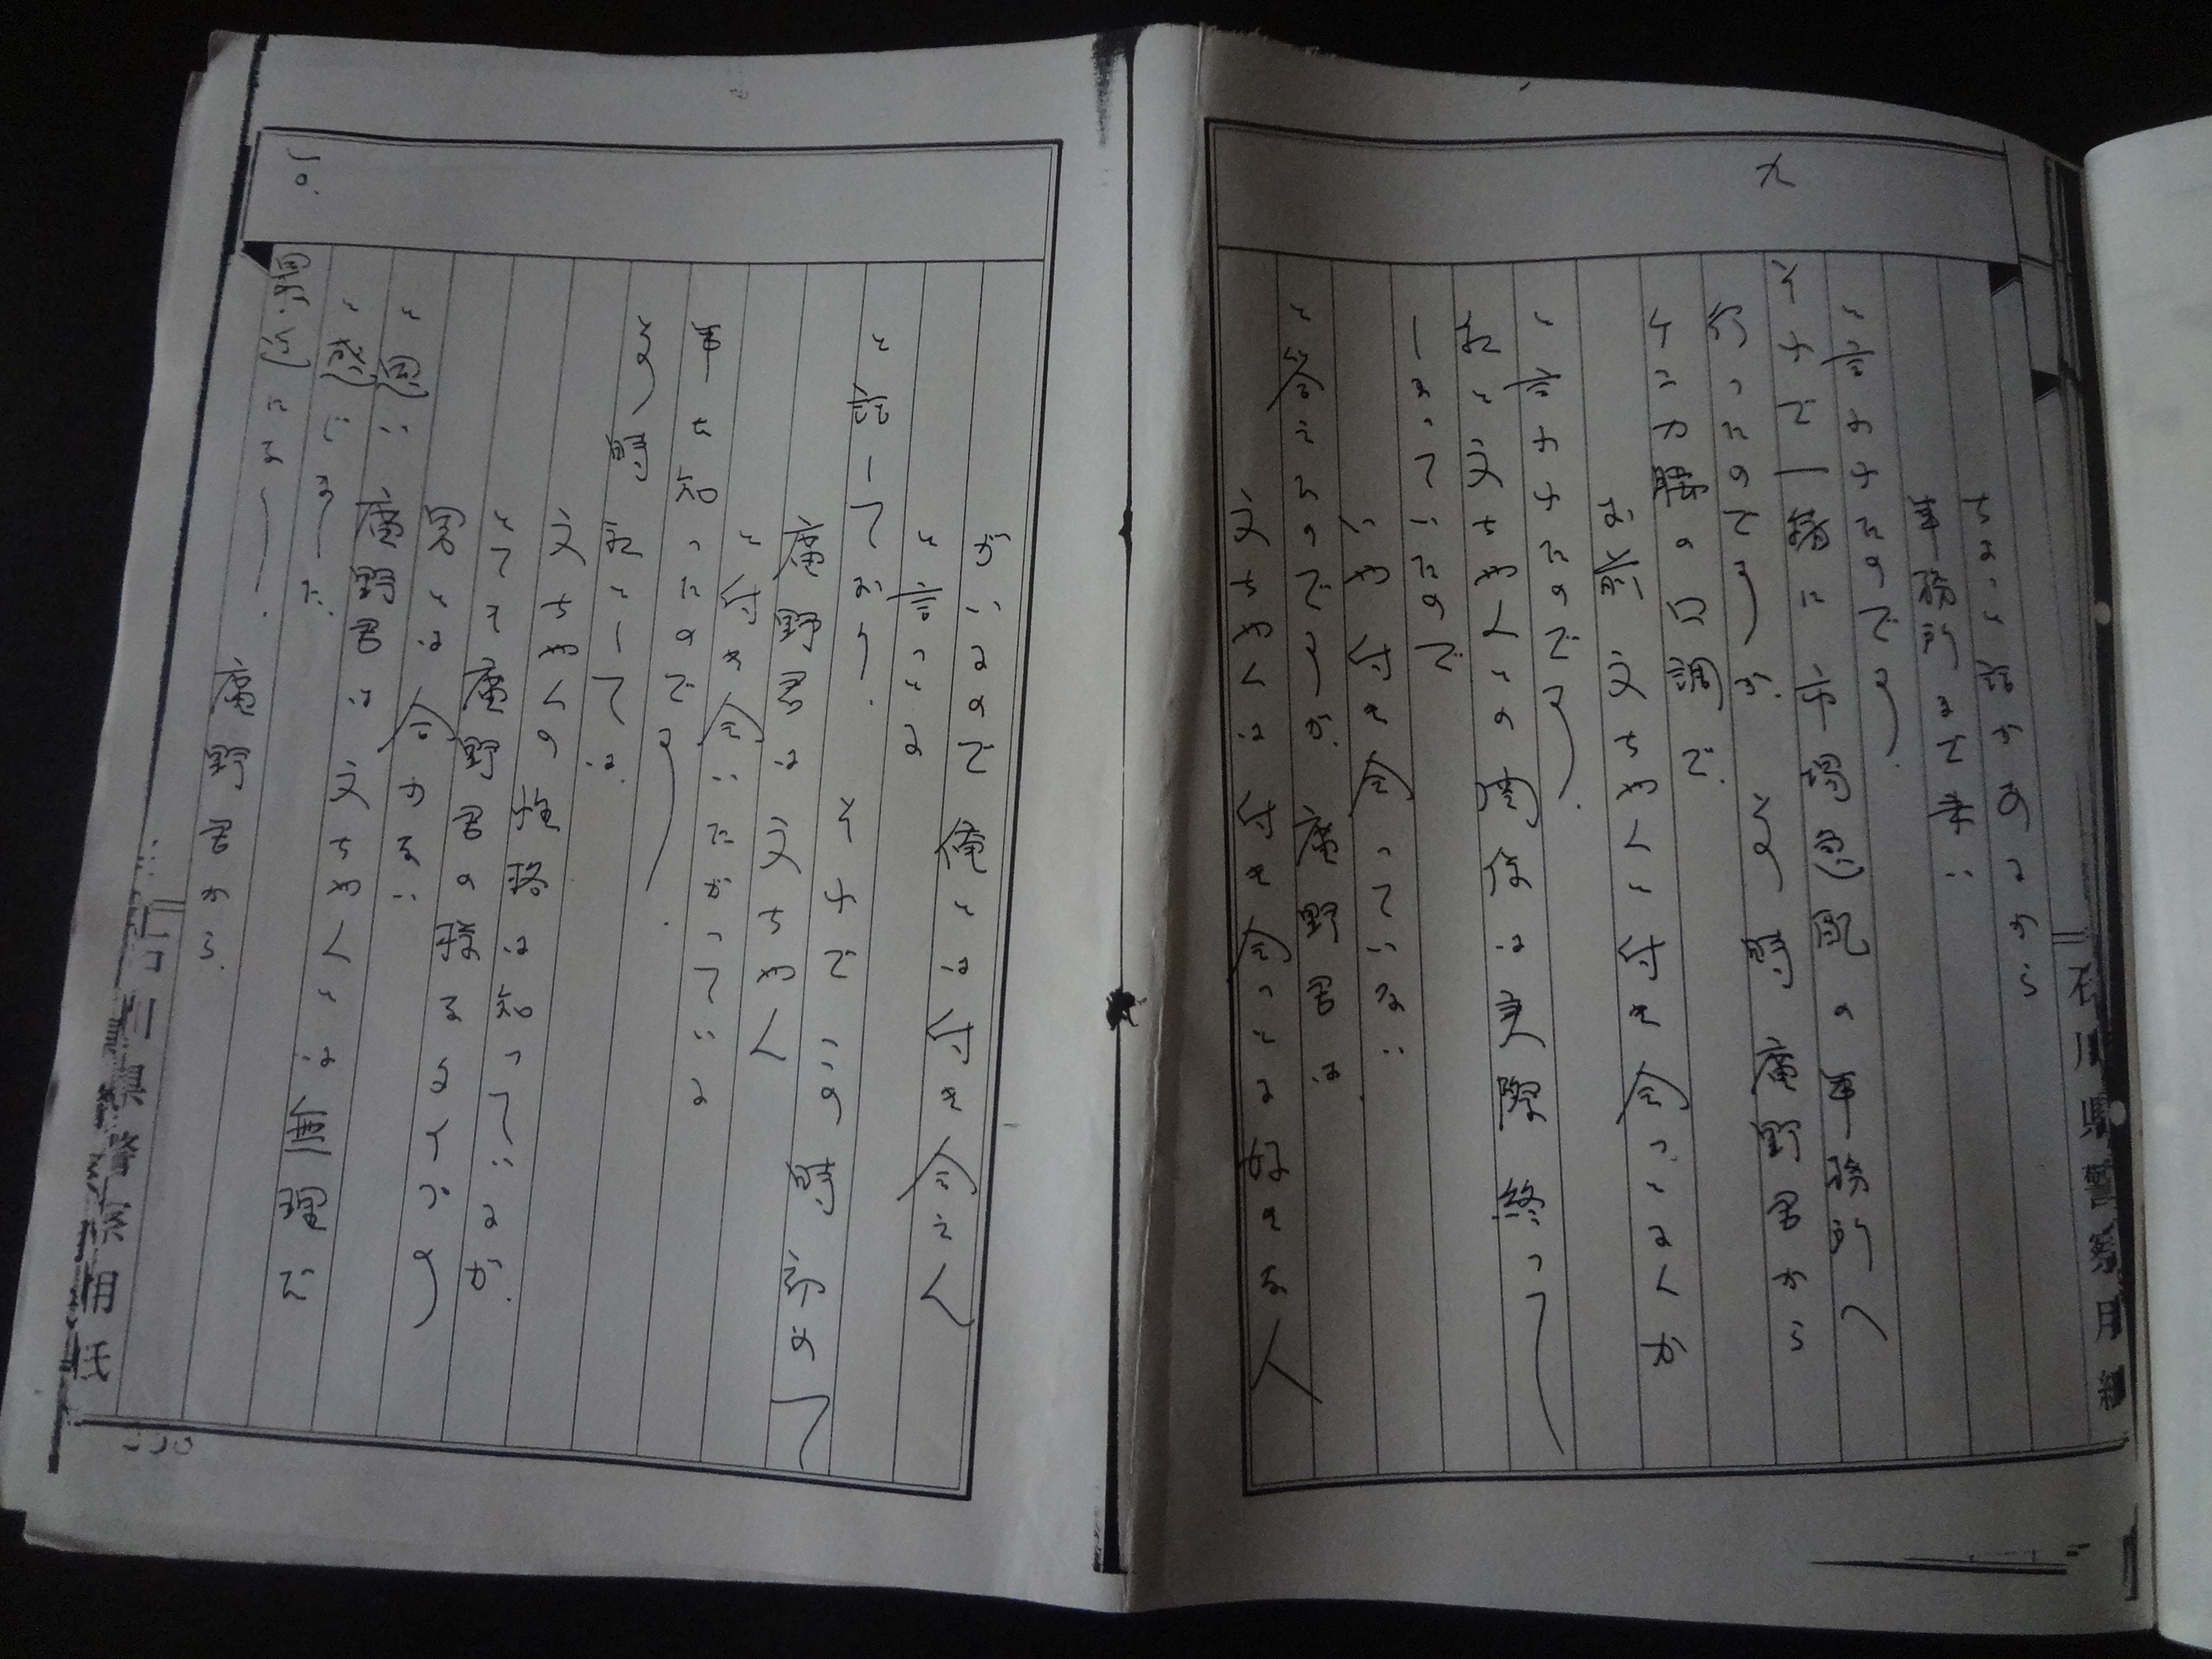 九
ちょっと話があるから
事務所まで来い
と言われたのです。
それで一緒に市場急配の事務所へ
行ったのですが、その時廣野君から
ケンカ腰の口調で、
お前 文ちゃんと付き合っとるんか
と言われたのです。
私と文ちゃんとの関係は実際終って
しまっていたので
いや付き合っていない
と答えたのですが、廣野君は
文ちゃんは付き合っとる好きな人
がいるので俺とは付き合えん
と言っとる
と話しており、それでいの時初めて
廣野君は文ちゃん
と付き合いたがっている
事を知ったのです。
その時私としては、
文ちゃんの性格は知っているが、
とても廣野君の様なタイプの
男とは合わない
と思い、廣野君は文ちゃんとは無理だ
と感じました。
廣野君から